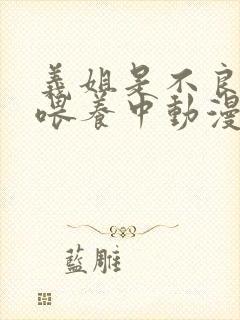 義姐是不良
喂養中動漫
藍雕